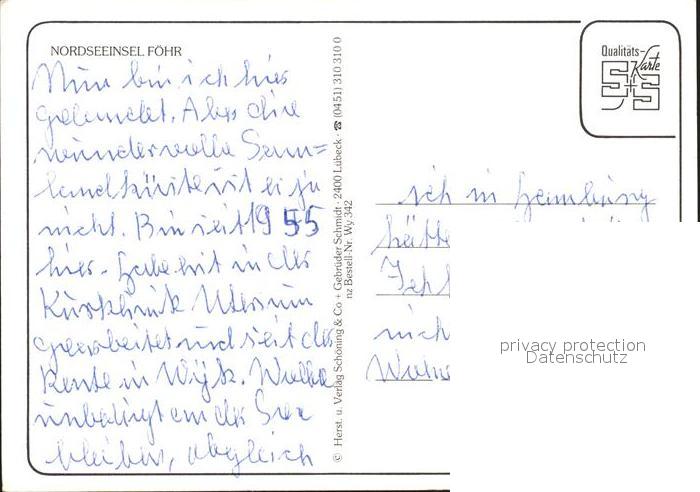 NORDSEEINSEL FÖHR
Nun bin ich hier
gelandet. Aber die
wundervolle Samm=
landküste ist es ja
nicht. Bin seit 1955
hier. Habe erst in der
Kurklinik Utersum
gearbeitet und seit der
Rente in Wyk. Wollte
unbedingt an der See
bleiben, obgleich
© Herst. u. Verlag Schöning & Co + Gebrüder Schmidt · 2400 Lübeck · ☎ (0451) 310 310 0
nz Bestell-Nr. Wy 342
Qualitäts-
Karte
S+S
ich in Hamburg
hätte
nich
privacy protection
Datenschutz